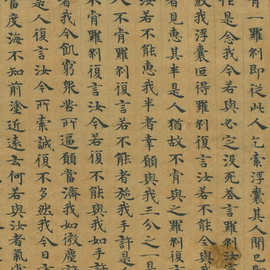 有一羅剎從其人乞索浮囊其人聞已
作是念我今若與必定沒死荅言羅剎汝
殺我浮囊叵得羅剎復言汝若不能全與
者見惠其半是人猶故不肯與之羅剎復
汝若不能惠我半者幸願與我三分之一是
人不肯羅剎復言若不能者施我手許是
不肯羅剎復言汝今若不能與我如手許
者我今飢窮眾苦所逼願當濟我如微塵
是人復言汝今所索誠復不多然我今日方
當度海不知前塗近遠云何若與汝者氣